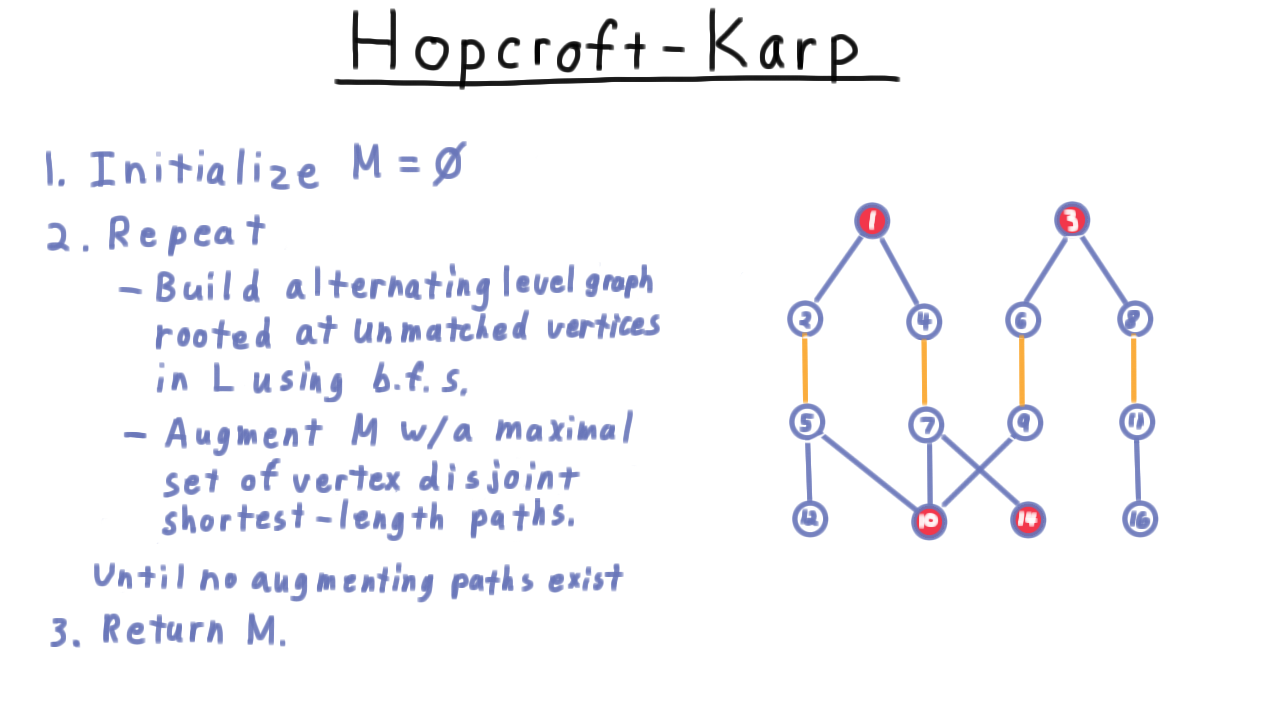 Hopcroft-Karp
1. Initialize M = Ø
2. Repeat
- Build alternating level graph
rooted at unmatched vertices
in L using b.f.s.
- Augment M w/a maximal
set of vertex disjoint
shortest-length paths.
Until no augmenting paths exist
3. Return M.
1 3
2 4 6 8
5 7 9 11
12 10 14 16